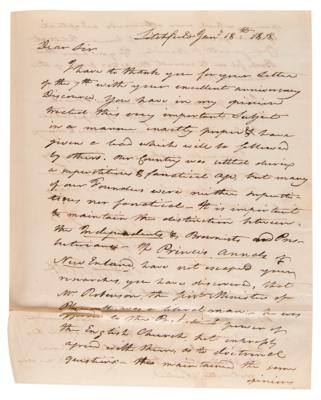 Litchfield Jany 18th 1818
Dear Sir.
I have to thank you for your Letter
of the 7th with your excellent anniversary
Discourse. You have in my opinion
treated this very important Subject
in a manner exactly proper & have
given a lead which will be followed
by others. Our Country was settled during
a superstitious & fanatical Age, but many
of our Founders were neither supersti-
tious nor fanatical. It is important
to maintain the distinction between
the Independents & Brownists and Pres-
byterians. The Princes Annals of
New England, have not escaped your
researches, you have discovered, that
Mr. Robinson, the first Minister of
was a liberal man - he was
opposed to the power of
the English Church but entirely
agreed with them, as to doctrinal
questions - He maintained the same
opinions